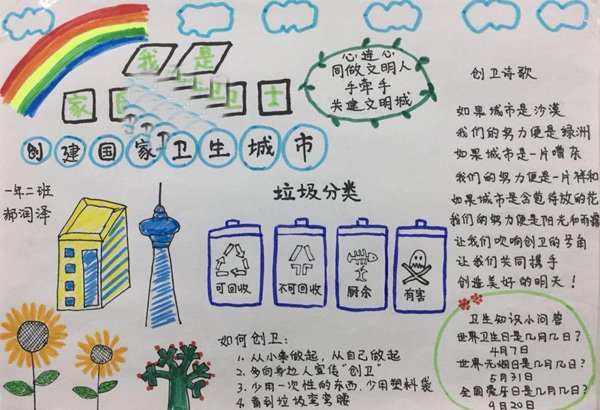 我是
家
卫士
创建国家卫生城市
心连心
同做文明人
手牵手
共建文明城
一年二班
郝润泽
垃圾分类
可回收
不可回收
厨余
有害
如何创卫:
1. 从小事做起,从自己做起
2. 多向身边人宣传“创卫”
3. 少用一次性的东西,少用塑料袋
4. 看到垃圾弯弯腰
创卫诗歌
如果城市是沙漠
我们的努力便是绿洲
如果城市是一片嘈杂
我们的努力便是一片祥和
如果城市是含苞待放的花
我们的努力便是阳光和雨露
让我们吹响创卫的号角
让我们共同携手
创造美好的明天!
卫生知识小问答
世界卫生日是几月几日?
4月7日
世界无烟日是几月几日?
5月31日
全国爱牙日是几月几日?
9月20日